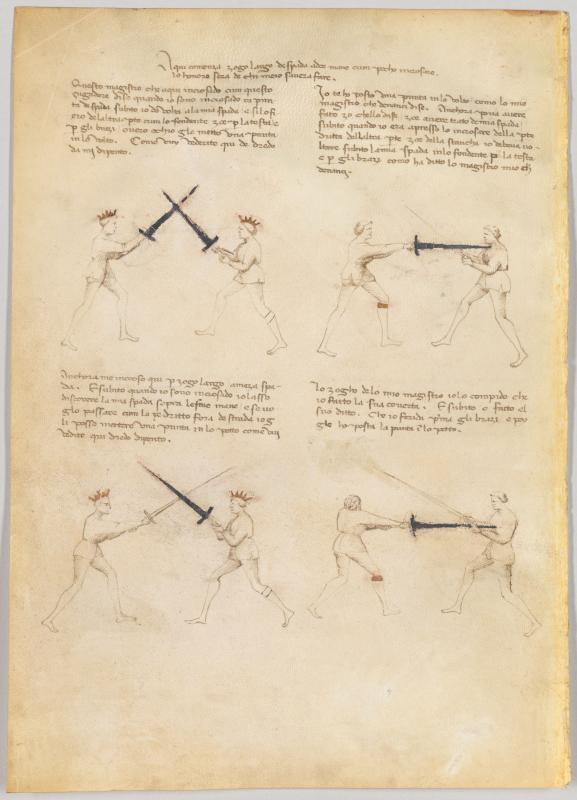 Aqui comenza zogo largo de spada a doe mane cum
lo honore sera de chi meio savera fare.
Questo magistro che aqui incrosado cum questo
zugadore dise quando io sono incrosado in pun
ta de spada subito io do volta a la mia spada e si lo fi
ero de l altra cum lo fendente zoe p la testa e
p gli brazi overo che io gle metto una punta
in lo volto. Como vederite qui de dredo
da mi depento.
Io t ho posto una punta in lo volto como lo mio
magistro che denanzi dise. Anchora
fato zo che lo dise zoe avere trato de mia spada
subito quando io era apresso lo incrosare della pte
dritta dell altra pte zoe della stancha io debeva vo
ltare subito la mia spada in lo fendente p la testa
e p gli brazi como ha ditto lo magistro mio ch
denanzi.
Anchora me incroso qui p zogo largo a meza spa
da. E subito quando io sono incrosado io lasso
discorere la mia spada sopra le soe mane e se vo
glio passare cum lo pe dritto fora de strada io g
li posso mettere una punta in lo petto como
vedite qui dredo depento.
Lo zogho de lo mio magistro io lo complido che
io ho fatto la sua coverta. E subito o fatto el
suo ditto. Che io ferida p̃ma gli brazi e poy
gle ho posta la punta ĩ lo petto.